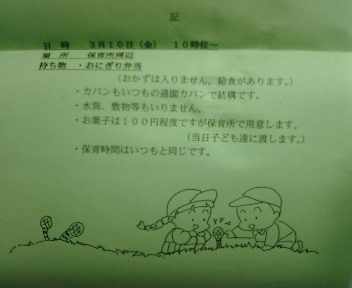 記
日　時　３月１０日（金）　１０時位～
場　所　保育所周辺
持ち物　・おにぎり弁当
（おかずは入りません。給食があります。）
・カバンもいつもの通園カバンで結構です。
・水筒、敷物等もいりません。
・お菓子は１００円程度ですが保育所で用意します。
（当日子ども達に渡します。）
・保育時間はいつもと同じです。